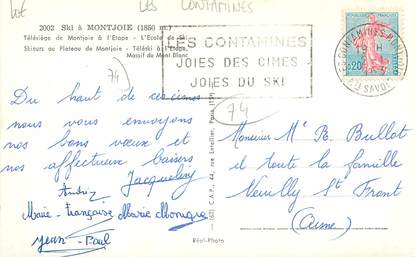 Lot LES CONTAMINES
2002 Ski à MONTJOIE (1850 m)
Télésiège de Montjoie à l'Etape - L'Ecole de Ski
Skieurs au Plateau de Montjoie - Téléski à l'Etape
Massif du Mont Blanc
74
LES CONTAMINES
JOIES DES CIMES
JOIES DU SKI
LES CONTAMINES-MONTJOIE
HTE SAVOIE
0,20
74
Du haut de ces cimes
nous vous envoyons
nos bons vœux et
nos affectueux baisers
Jacqueline
André
Marie-Françoise Marie Monique
Jean-Paul
Monsieur Me R. Bullot
et toute la famille
Neuilly St Front
(Aisne)
C.A.P., 44, rue Letellier, Paris
Réel-Photo